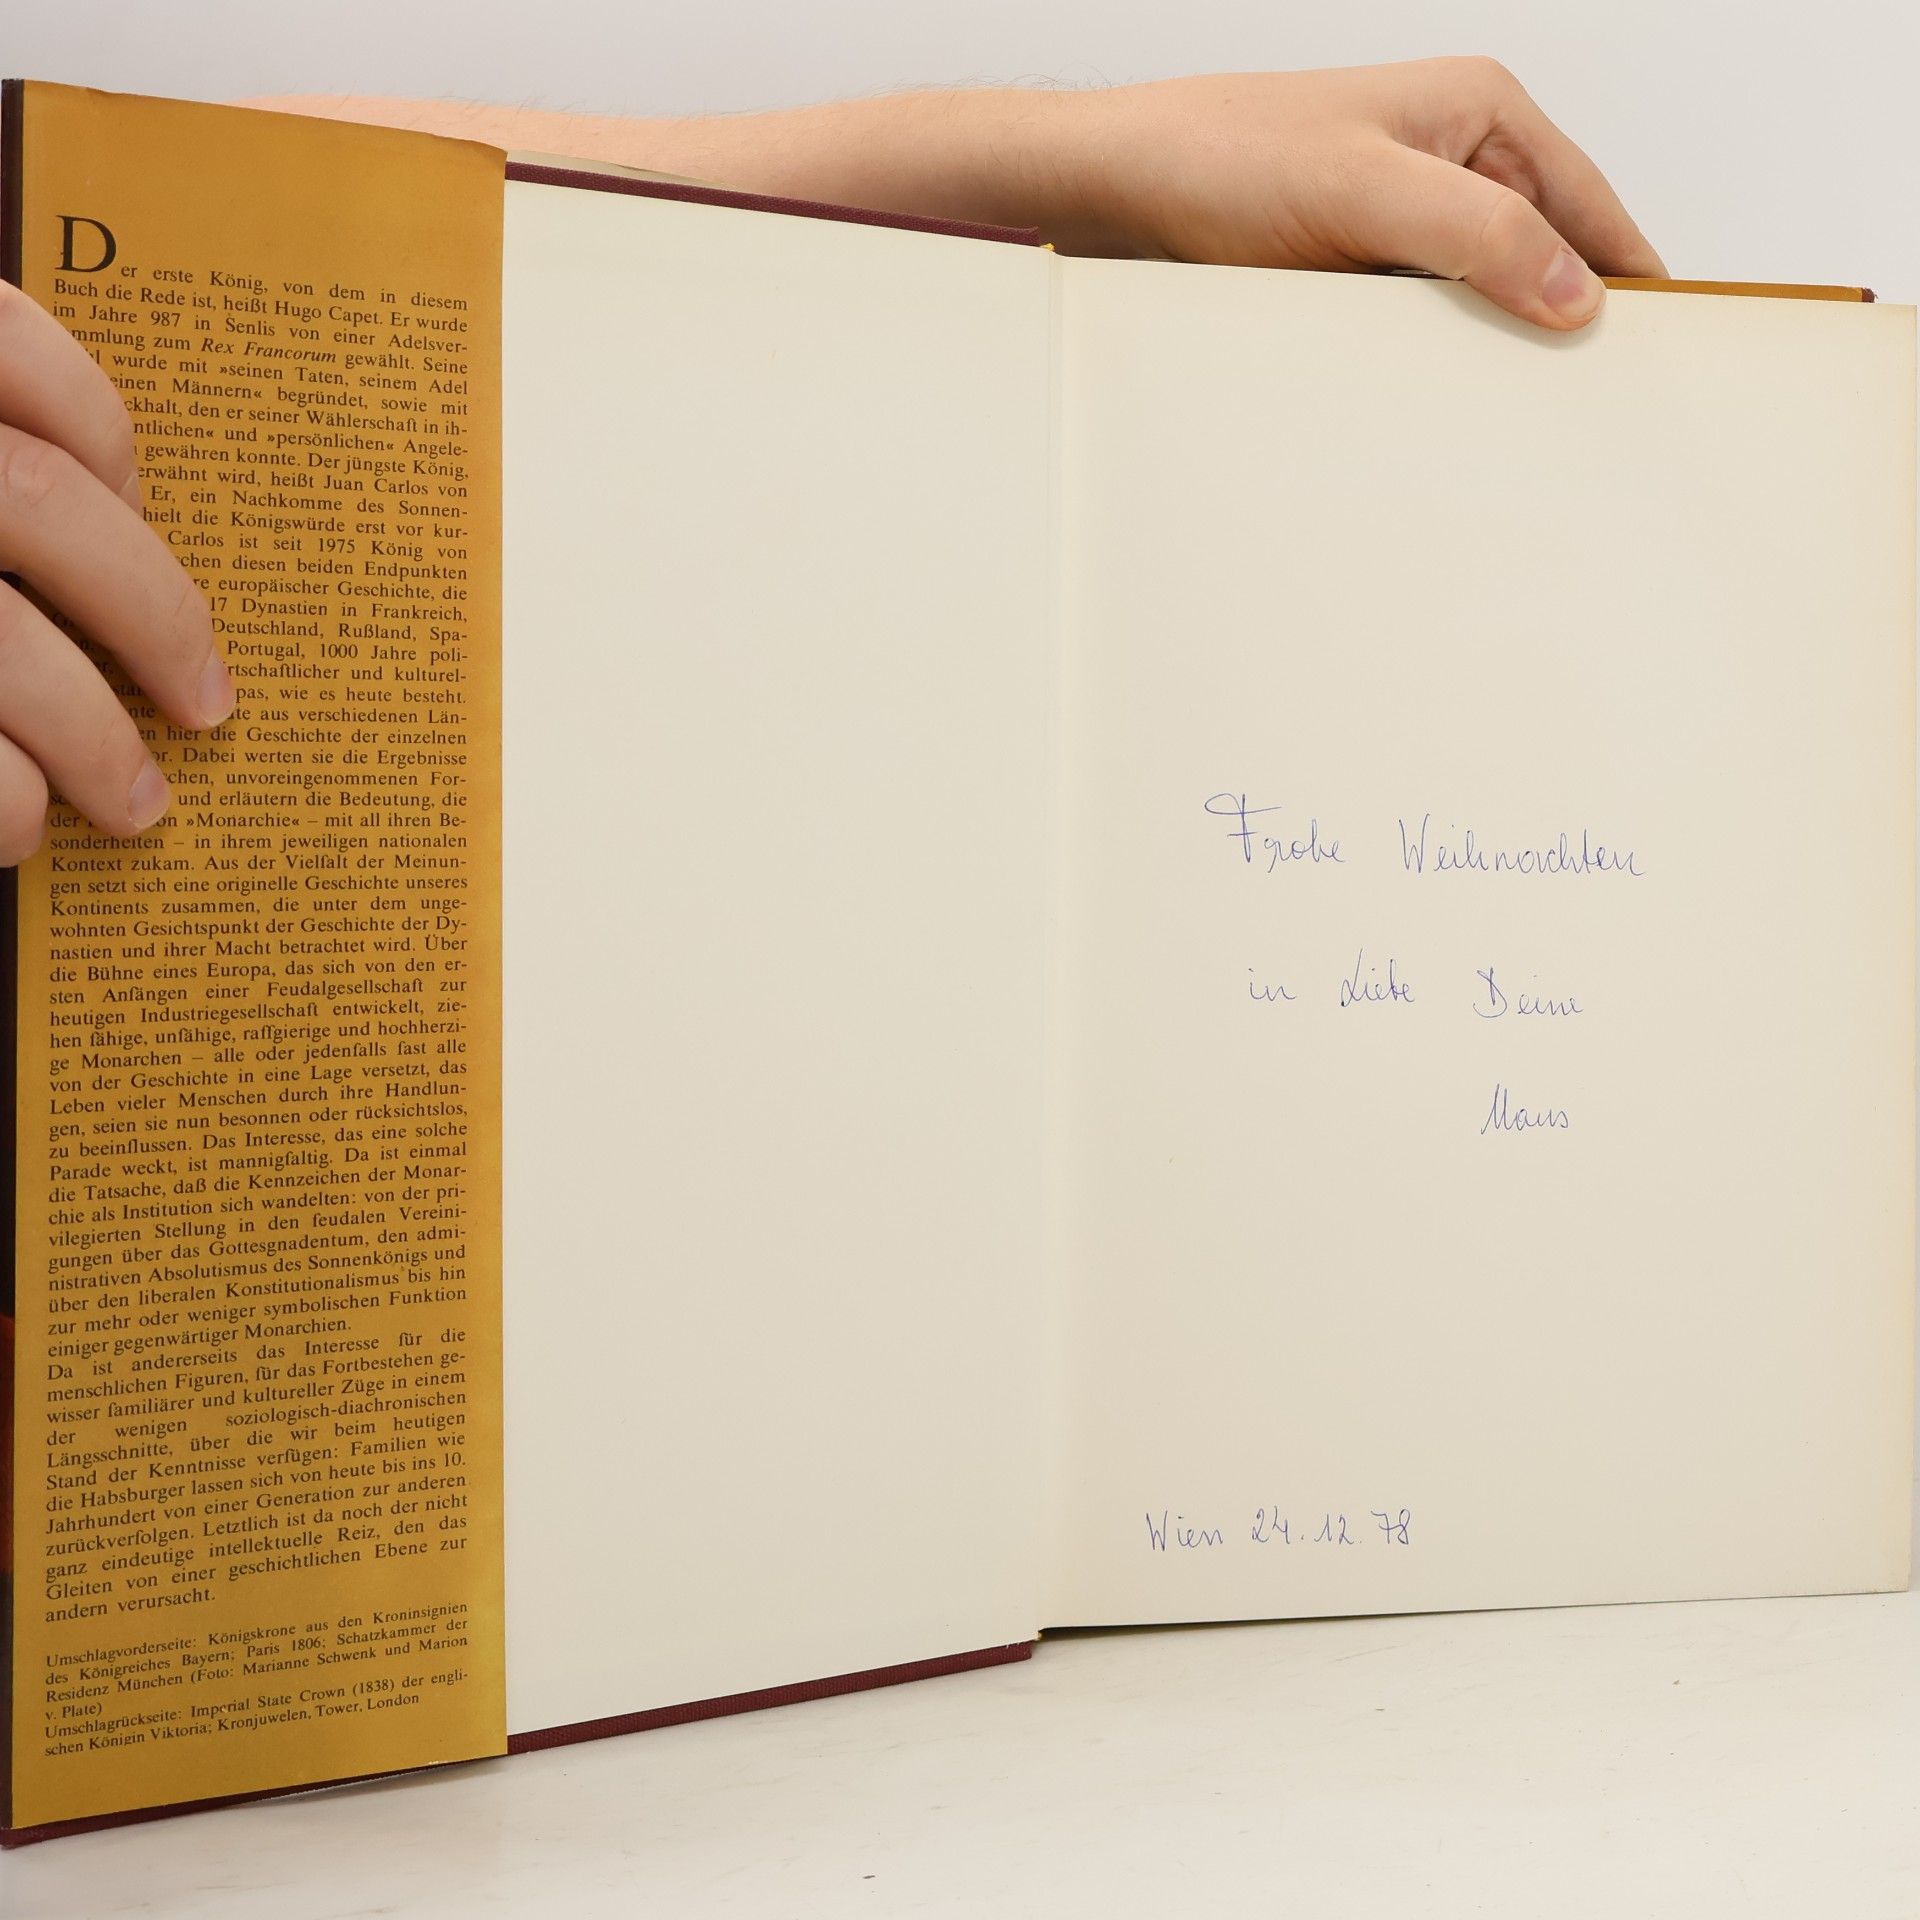 Der erste König, von dem in diesem
Buch die Rede ist, heißt Hugo Capet. Er wurde
im Jahre 987 in Senlis von einer Adelsver-
mmlung zum Rex Francorum gewählt. Seine
wurde mit »seinen Taten, seinem Adel
einen Männern« begründet, sowie mit
ckhalt, den er seiner Wählerschaft in ih-
ntlichen« und »persönlichen« Angele-
gewähren konnte. Der jüngste König,
erwähnt wird, heißt Juan Carlos von
Er, ein Nachkomme des Sonnen-
hielt die Königswürde erst vor kur-
Carlos ist seit 1975 König von
schen diesen beiden Endpunkten
re europäischer Geschichte, die
17 Dynastien in Frankreich,
Deutschland, Rußland, Spa-
Portugal, 1000 Jahre poli-
rtschaftlicher und kulturel-
pas, wie es heute besteht.
nte ute aus verschiedenen Län-
en hier die Geschichte der einzelnen
or. Dabei werten sie die Ergebnisse
schen, unvoreingenommenen For-
und erläutern die Bedeutung, die
der on »Monarchie« – mit all ihren Be-
sonderheiten – in ihrem jeweiligen nationalen
Kontext zukam. Aus der Vielfalt der Meinun-
gen setzt sich eine originelle Geschichte unseres
Kontinents zusammen, die unter dem unge-
wohnten Gesichtspunkt der Geschichte der Dy-
nastien und ihrer Macht betrachtet wird. Über
die Bühne eines Europa, das sich von den er-
sten Anfängen einer Feudalgesellschaft zur
heutigen Industriegesellschaft entwickelt, zie-
hen fähige, unfähige, raffgierige und hochherzi-
ge Monarchen – alle oder jedenfalls fast alle
von der Geschichte in eine Lage versetzt, das
Leben vieler Menschen durch ihre Handlun-
gen, seien sie nun besonnen oder rücksichtslos,
zu beeinflussen. Das Interesse, das eine solche
Parade weckt, ist mannigfaltig. Da ist einmal
die Tatsache, daß die Kennzeichen der Monar-
chie als Institution sich wandelten: von der pri-
vilegierten Stellung in den feudalen Vereini-
gungen über das Gottesgnadentum, den admi-
nistrativen Absolutismus des Sonnenkönigs und
über den liberalen Konstitutionalismus bis hin
zur mehr oder weniger symbolischen Funktion
einiger gegenwärtiger Monarchien.
Da ist andererseits das Interesse für die
menschlichen Figuren, für das Fortbestehen ge-
wisser familiärer und kultureller Züge in einem
der wenigen soziologisch-diachronischen
Längsschnitte, über die wir beim heutigen
Stand der Kenntnisse verfügen: Familien wie
die Habsburger lassen sich von heute bis ins 10.
Jahrhundert von einer Generation zur anderen
zurückverfolgen. Letztlich ist da noch der nicht
ganz eindeutige intellektuelle Reiz, den das
Gleiten von einer geschichtlichen Ebene zur
andern verursacht.
Umschlagvorderseite: Königskrone aus den Kroninsignien
des Königreiches Bayern; Paris 1806; Schatzkammer der
Residenz München (Foto: Marianne Schwenk und Marion
v. Plate)
Umschlagrückseite: Imperial State Crown (1838) der engli-
schen Königin Viktoria; Kronjuwelen, Tower, London
Frohe Weihnachten
in Liebe Deine
Maus
Wien 24.12.78